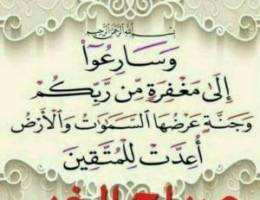 بسم الله الرحمن الرحيم
وَسَارِعُوٓا۟
إِلَىٰ مَغْفِرَةٍ مِّن رَّبِّكُمْ
وَجَنَّةٍ عَرْضُهَا السَّمَٰوَٰتُ وَالْأَرْضُ
أُعِدَّتْ لِلْمُتَّقِينَ